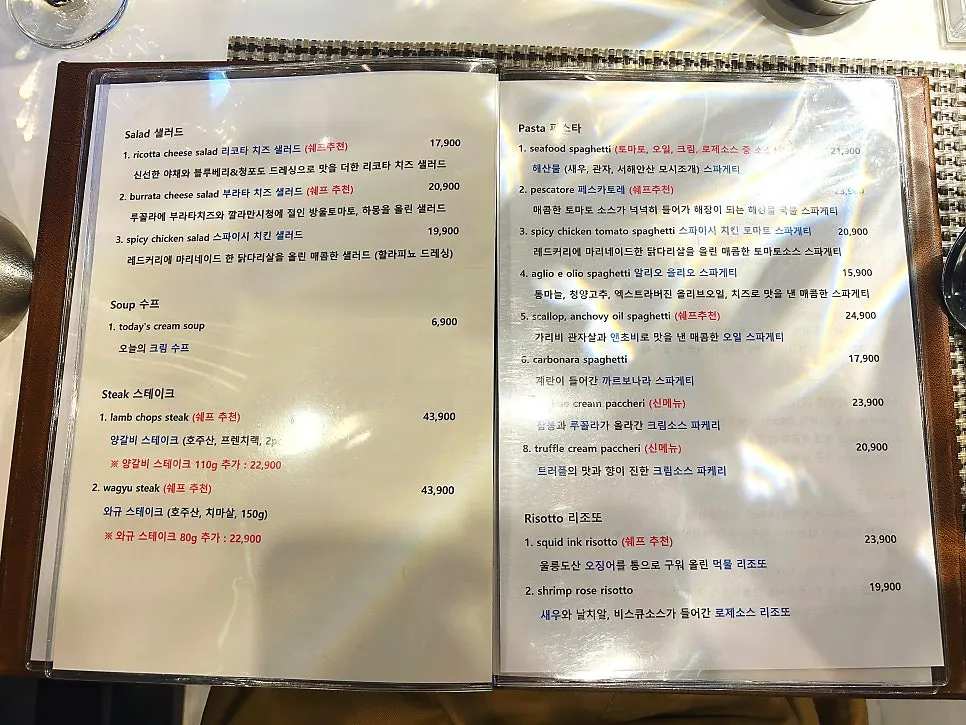 Salad 샐러드
1. ricotta cheese salad 리코타 치즈 샐러드 (쉐프추천) 17,900
신선한 야채와 블루베리&청포도 드레싱으로 맛을 더한 리코타 치즈 샐러드
2. burrata cheese salad 부라타 치즈 샐러드 (쉐프 추천) 20,900
루꼴라에 부라타치즈와 깔라만시청에 절인 방울토마토, 하몽을 올린 샐러드
3. spicy chicken salad 스파이시 치킨 샐러드 19,900
레드커리에 마리네이드 한 닭다리살을 올린 매콤한 샐러드 (할라피뇨 드레싱)
Soup 수프
1. today's cream soup 6,900
오늘의 크림 수프
Steak 스테이크
1. lamb chops steak (쉐프 추천) 43,900
양갈비 스테이크 (호주산, 프렌치랙,
※ 양갈비 스테이크 110g 추가 : 22,900
2. wagyu steak (쉐프 추천) 43,900
와규 스테이크 (호주산, 치마살, 150g)
※ 와규 스테이크 80g 추가 : 22,900
Pasta 파스타
1. seafood spaghetti (토마토, 오일, 크림, 로제소스 중 21,900
해산물 (새우, 관자, 서해안산 모시조개) 스파게티
2. pescatore 페스카토레 (쉐프추천)
매콤한 토마토 소스가 넉넉히 들어가 해장이 되는 해산물 국물 스파게티
3. spicy chicken tomato spaghetti 스파이시 치킨 토마토 스파게티 20,900
레드커리에 마리네이드한 닭다리살을 올린 매콤한 토마토소스 스파게티
4. aglio e olio spaghetti 알리오 올리오 스파게티 15,900
통마늘, 청양고추, 엑스트라버진 올리브오일, 치즈로 맛을 낸 매콤한 스파게티
5. scallop, anchovy oil spaghetti (쉐프추천) 24,900
가리비 관자살과 앤초비로 맛을 낸 매콤한 오일 스파게티
6. carbonara spaghetti 17,900
계란이 들어간 까르보나라 스파게티
cream paccheri (신메뉴) 23,900
루꼴라가 올라간 크림소스 파케리
8. truffle cream paccheri (신메뉴) 20,900
트러플의 맛과 향이 진한 크림소스 파케리
Risotto 리조또
1. squid ink risotto (쉐프 추천) 23,900
울릉도산 오징어를 통으로 구워 올린 먹물 리조또
2. shrimp rose risotto 19,900
새우와 날치알, 비스큐소스가 들어간 로제소스 리조또